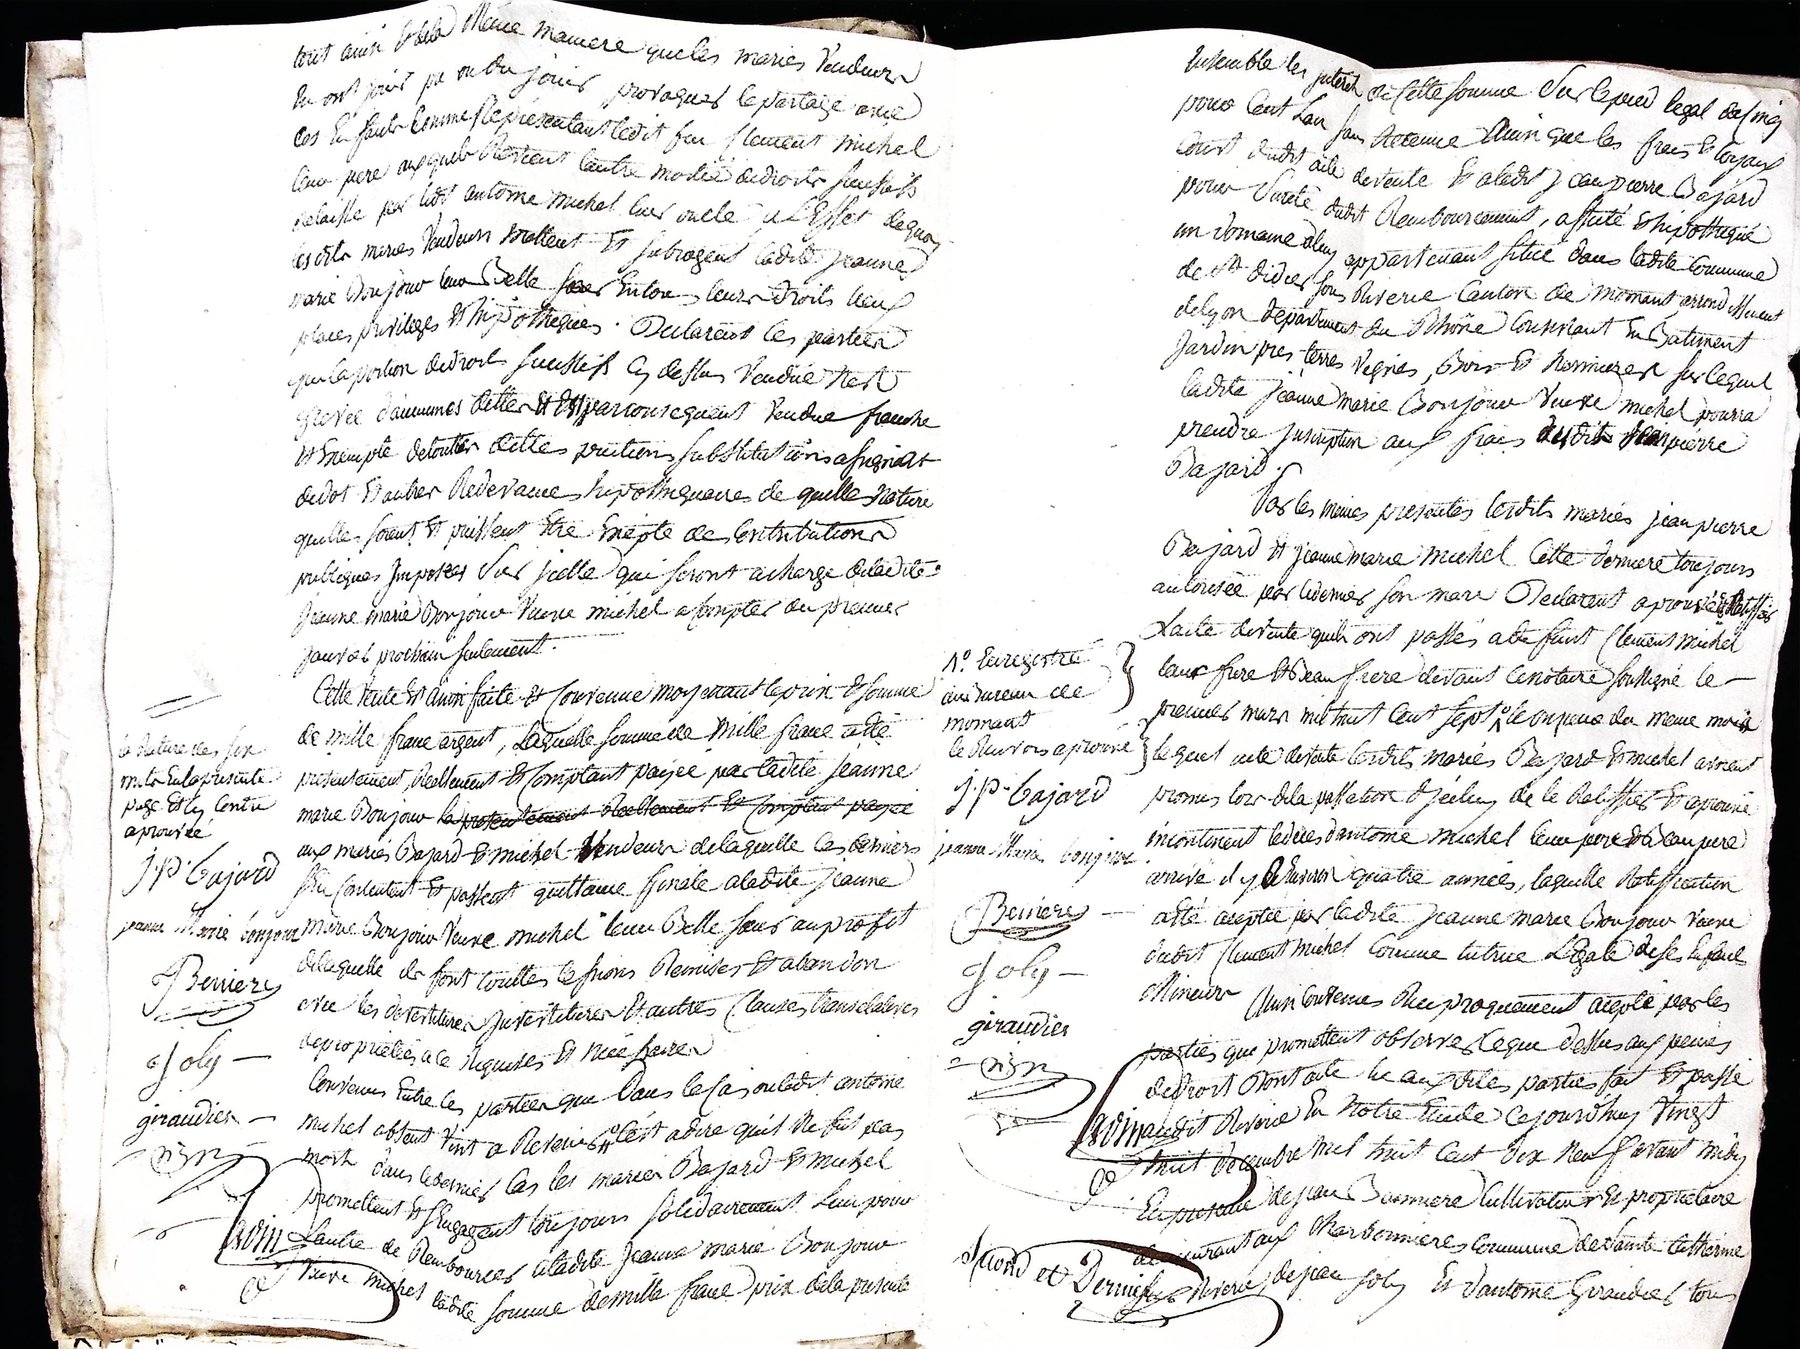 tout ainsi et de la Meme maniere que les mariés Vendeurs
En ont joui pu ou du jouir provoquer le partage avec
les Enfants comme Représentant ledit feu Clement Michel
leur pere auxquels Revient l'autre moitié de droits successifs
delaissé par ledit antoine Michel leur oncle a L'Effet de quoy
lesdits mariés Vendeurs mettent et subrogent ladite jeanne
marie Bonjour leur Belle sœur En tous leurs droits lieux
places privileges et hipothèques. Declarent les parties
que la portion de droits successifs cy dessus Vendue n'est
grevée d'aucunes dettes et Est par consequent Vendue franche
et Exempte de touttes dettes pentions substitutions
de dot et autres Redevances hipothequaires de quelle Nature
quelles soient et puissent Etre Exepté des Contributions
publiques Imposees sur jcelle qui seront a charge de ladite
Jeanne marie Bonjour Veuve michel a Compter du premier
janvier prochain seulement.
Cette Vente Est ainsi faite et Convenue moyenant le prix et somme
de mille franc argent, Laquelle somme de mille franc a été
presentement, Reellement et Comptant payée par ladite jeanne
marie Bonjour la presentement Reellement et Comptant payée
aux mariés Bajard et michel Vendeurs de laquelle Ces derniers
s'En Contentent et passent quittance finale a ladite Jeanne
marie Bonjour Veuve michel leur Belle sœur au profit
de laquelle ils font touttes
avec les devestitures jnvestitures et autres Clauses translatives
de proprietés a ce Requises et Necessaires
Convenus Entre les parties que Dans le Cas ou ledit antoine
michel absent Vint a Revenir C'est a dire qu'il Ne fut pas
mort dans ce dernier Cas les mariés Bajard et Michel
promettent et s'Engagent toujours solidairement L'un pour
L'autre de Rembourser a ladite Jeanne marie Bonjour
Veuve michel ladite somme de mille franc prix de la presente
la Rature des six
mots En la presente
page Et cy Contre
aprouvé
J.P. Bajard
jeanne Marie bonjour
Berriere
Joly
giraudier
Ensemble les jnterets de Cette somme sur le pied legal de Cinq
pour Cent L'an sans Retenue Ainsi que les frais et loyaux
Couts dudit acte de vente et a ledit jean pierre Bajard
pour sureté dudit Remboursement, affecté et hipothequé
un domaine a luy appartenant situé dans ladite Commune
de St didier sous Riverie Canton de mornant arrondissement
de lyon departement du Rhône Consistant En Batiment
jardin prés terres Vignes, Bois et Hermitures sur lequel
ladite jeanne marie Bonjour Veuve michel pourra
prendre jnscription aux frais dudit Jean pierre
Bajard.
Par les mêmes presentes lesdits mariés jean pierre
Bajard et jeanne marie michel Cette derniere toujours
autorisée par ce dernier son mari Declarent aprouver et Ratiffier
L'acte de vente qu'ils ont passés a defunt Clement Michel
leur frere et Beau frere devant le notaire soussigné le
premier mars mil huit Cent sept le onzieme du meme mois
lequel acte de vente lesdits mariés Bajard et michel avoient
promis lors de la passation d'jceluy de le Ratiffier et aprouver
incontinent le deces d'antoine michel leur pere et Beau pere
arrivé il y a Environ quatre années, laquelle Ratiffication
a été aceptée par ladite Jeanne marie Bonjour Veuve
dudit Clement Michel Comme tutrice Légale de ses Enfants
Mineurs Ainsi Convenus Reciproquement acepté par les
parties que promettent observer ce que dessus aux peines
de droit Dont acte lu aux dites parties fait et passé
audit Riverie En Notre Etude Cejourd'huy Vingt
huit Decembre Mil huit Cent Dix Neuf avant midy
En presence de jean Bonniere Cultivateur Et proprietaire
demeurant aux Charbonnieres Commune de Sainte Catherine
sur Riverie, de jean Joly Et d'antoine Giraudier tous
No Enregistré
au bureau de
mornant
le Renvois aprouvé
J.P. Bajard
jeanne Marie bonjour
Berriere
Joly
giraudier
Second et Dernier